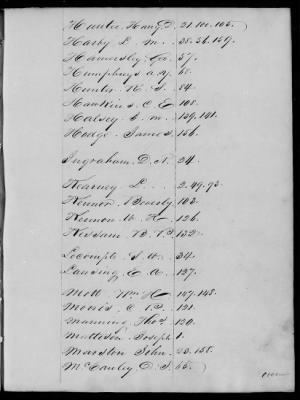 Hunter. Harry D. 21. 100. 105.
Harby L. M. 28. 56. 159.
Hamersley. Geo. 57.
Humphreys. A. Y. 68.
Hunter. N. S. 84.
Hawkins. C. E. 108.
Halsey. E. M. 139. 141.
Hodge. James. 156.
Ingraham. D. N. 24.
Kearney. L. 2. 49. 93.
Kennon. Beverly 103.
Kennon. W. H. 126.
Kessam. B. P. 132.
Lecompte. S. W. 34.
Lansing. E. A. 127.
Mott. Wm. H. 147. 148.
Morris. C. 121.
Manning. Thos. 120.
Matteson. Joseph 1.
Marston. John. 158.
McCauley. D. S. 65.